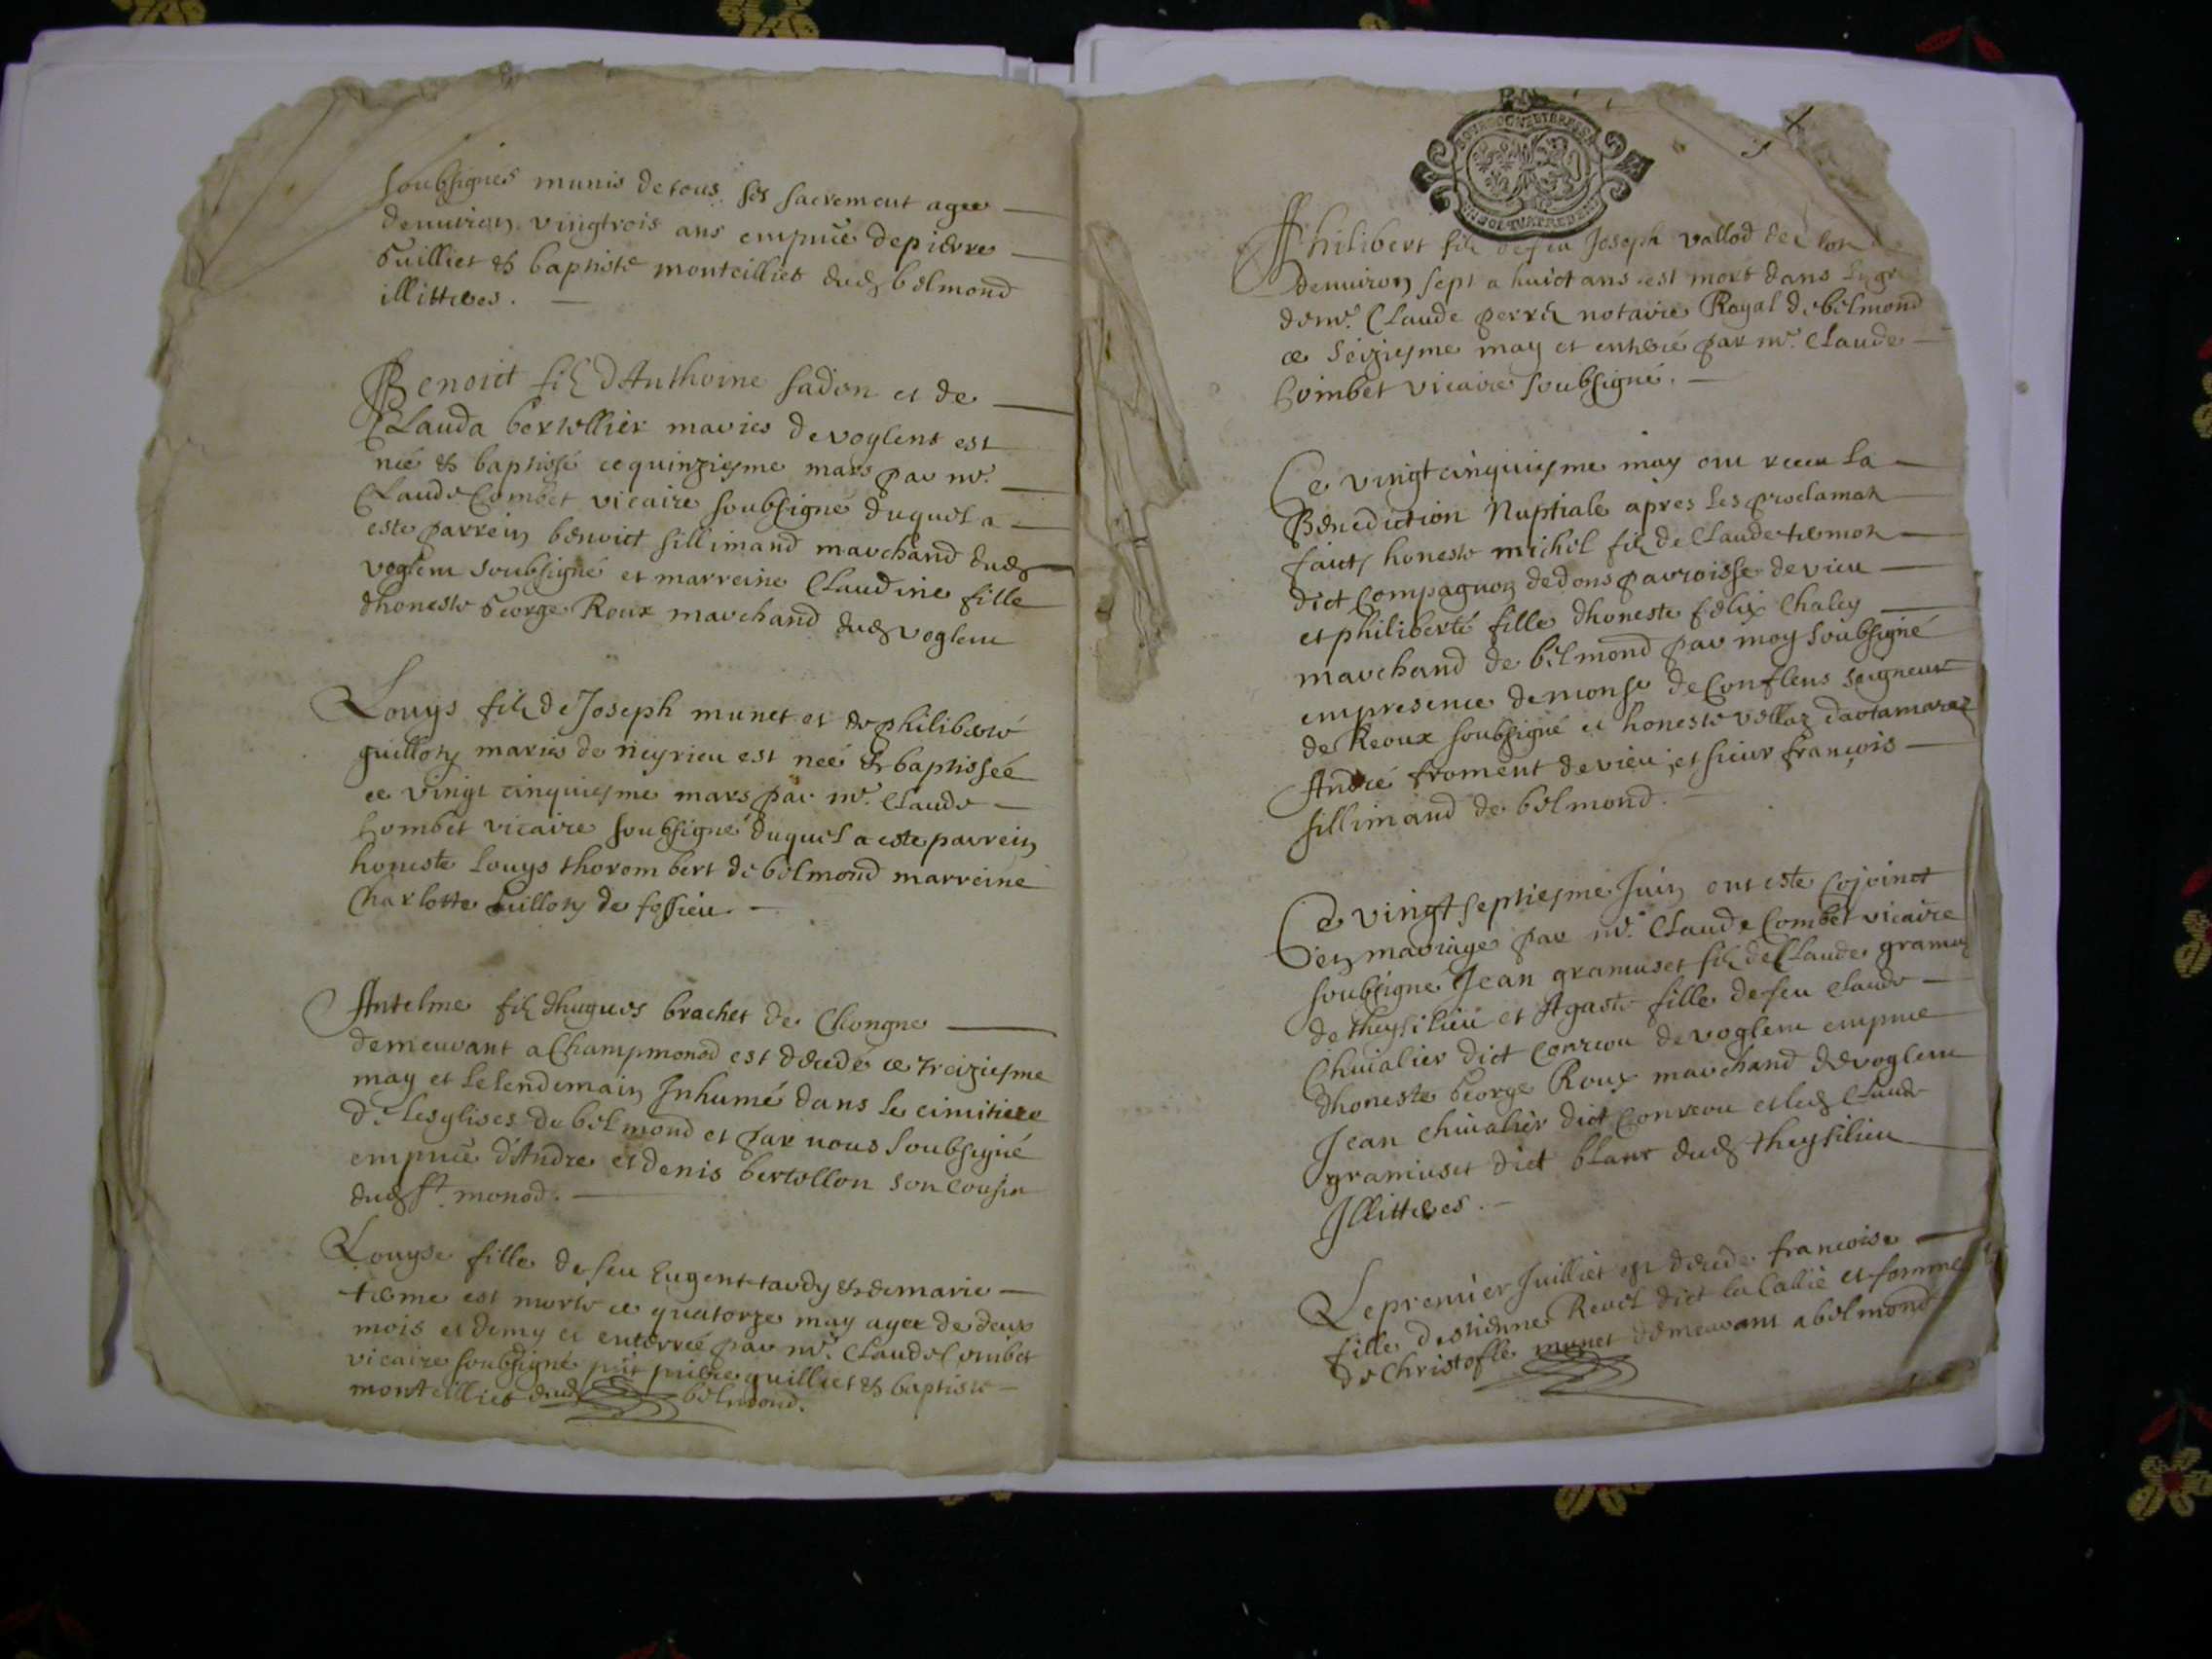 soubsignes munis de tous ses sacrement agee
denuiron vingtrois ans enpñce de pierre
Guilliet & baptiste monteilliet dud belmond
illitteres.
Benoict filz dAnthoine sadon et de
Clauda bertollier maries de voglens est
née & baptissé ce quinziesme mars par mr.
Claude Combet vicaire soubsigné duquel a
este parrein benoict sillimand marchand dud
voglem soubsigné et marreine Claudine fille
dhoneste George Roux marchand dud voglem
Louys filz de Joseph munet et de philiberte
guillon maries de neyrieu est neé & baptisseé
ce vingt cinquiesme mars par mr. Claude
Combet vicaire soubsigné duquel a este parrein
honeste Louys thorombert de belmond marreine
Charlotte Guillon de fossieu.
Antelme filz dhugues brachet de Chongne
demeurant a Champmonod est decedé ce treiziesme
may et lelendemain Inhumé dans le cimitiere
de lesglises de belmond et par nous soubsigné
enpñce d'Andre et denis bertollon son cousin
dud st. monod.
Louyse fille de feu Eugent tardy & de marie
teme est morte ce quatorze may agee de deux
mois et demy et enterreé par mr. Claude Combet
vicaire soubsigné pñt guilliet & baptiste
monteilliet dud belmond.
BOURGOGNE ET BRESSE
Philibert filz de feu Joseph vallod
denuiron sept a huict ans est mort dans
de mr. Claude perret notaire Royal de belmond
ce seiziesme may et enteré par mr. Claude
Combet vicaire soubsigné.
Ce vingt cinquiesme may ont receu la
Benediction Nuptiale apres les proclamaon
faict honeste michel filz de Claude
dict Compagnon de dons parroisse de vieu
et philiberte fille dhoneste felix Chaley
marchand de belmond par moy soubsigné
enpresence de monsr de Conflens seigneur
de Reoux soubsigné et honeste vellaz dartamaraz
André froment de vieu, et sieur françois
sillimand de belmond.
Ce vingt septiesme Juin ont este Cojoinct
en mariage par mr. Claude Combet vicaire
soubsigné Jean gramuset filz de Claude
de theysilieu et Agaste fille de feu claude
Chivalier dict de voglem enpñce
dhoneste George Roux marchand de voglem
Jean chivalier dict et led Claude
gramuset dict blanc dud theysilieu
Illitteres.
Le premier Juilliet est decede francoise
fille destienne Revel dict la Callie et femme
de Christofle munet demeurant a belmond